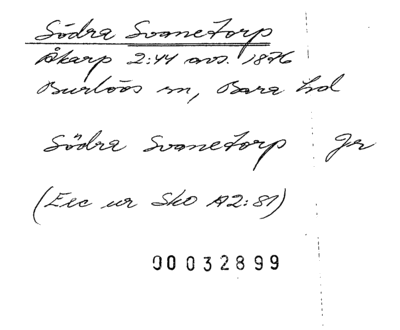 Södra Svanetorp
Åkarp 2:44 avs. 1876
Burlövs sn, Bara hd
Södra Svanetorp gr
(Exc ur Sko A2:81)
00032899